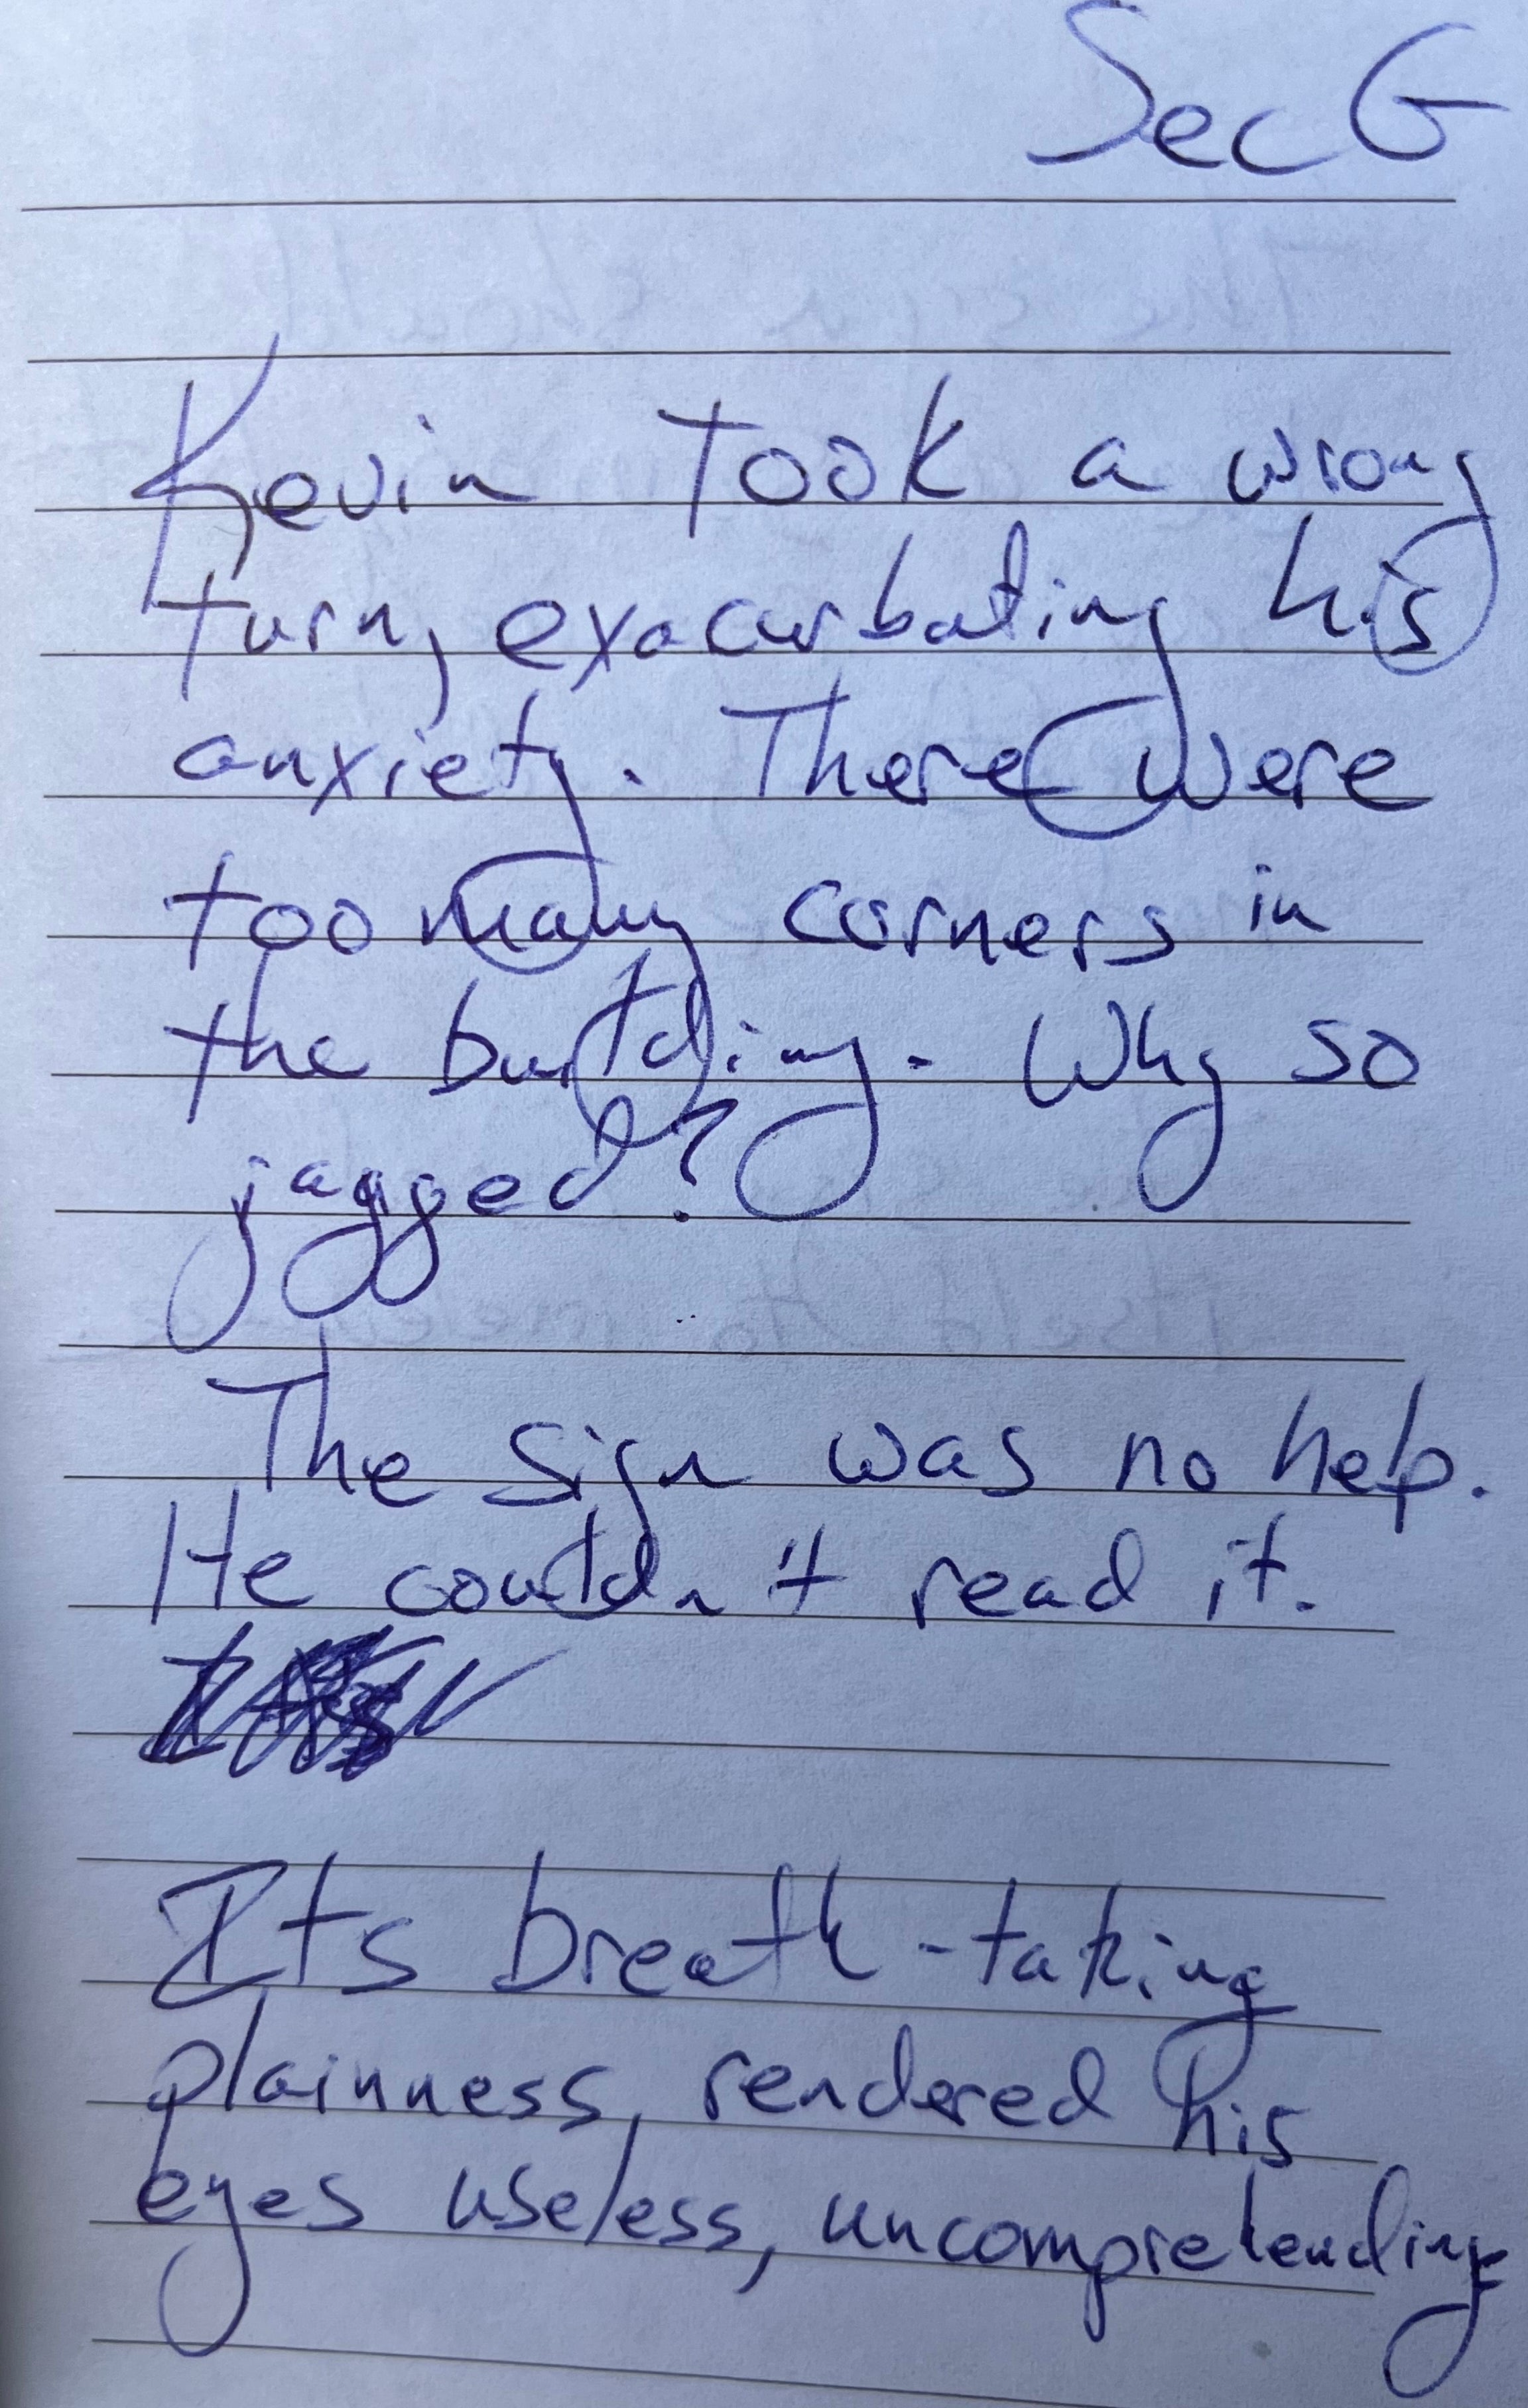 Sec G
Kevin took a wrong
turn, exacurbating his
anxiety. There were
too many corners in
the building. Why so
jagged?
The sign was no help.
He couldn't read it.
Its breath-taking
plainness, rendered his
eyes useless, uncomprehending